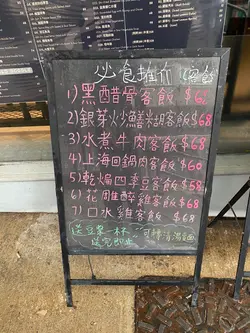 必食推介 客飯
1) 黑醋骨客飯 $62
2) 銀芽火少鱔糊客飯 $68
3) 水煮牛肉客飯 $68
4) 上海回鍋肉客飯 $60
5) 乾煸四季豆客飯 $58
6) 花雕醉雞客飯 $68
7) 口水雞客飯 $68
送豆漿一杯 可轉清湯麵
送完即止